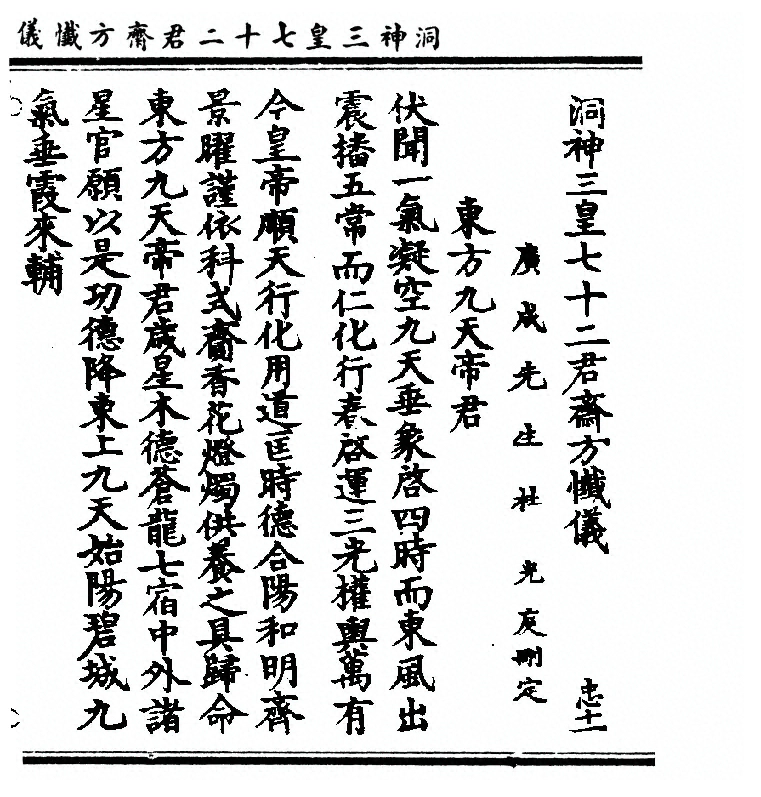 洞神三皇七十二君齋方懺儀
洞神三皇七十二君齋方懺儀 忠十一
廣成先生杜光庭刪定
東方九天帝君
伏聞一氣凝空九天垂象啓四時而東風出
震播五常而仁化行春啓運三光權輿萬有
今皇帝順天行化用道匡時德合陽和明齊
景曜謹依科式齎香花燈燭供養之具歸命
東方九天帝君歲星木德蒼龍七宿中外諸
星官願以是功德降東上九天始陽碧城九
氣垂霞來輔